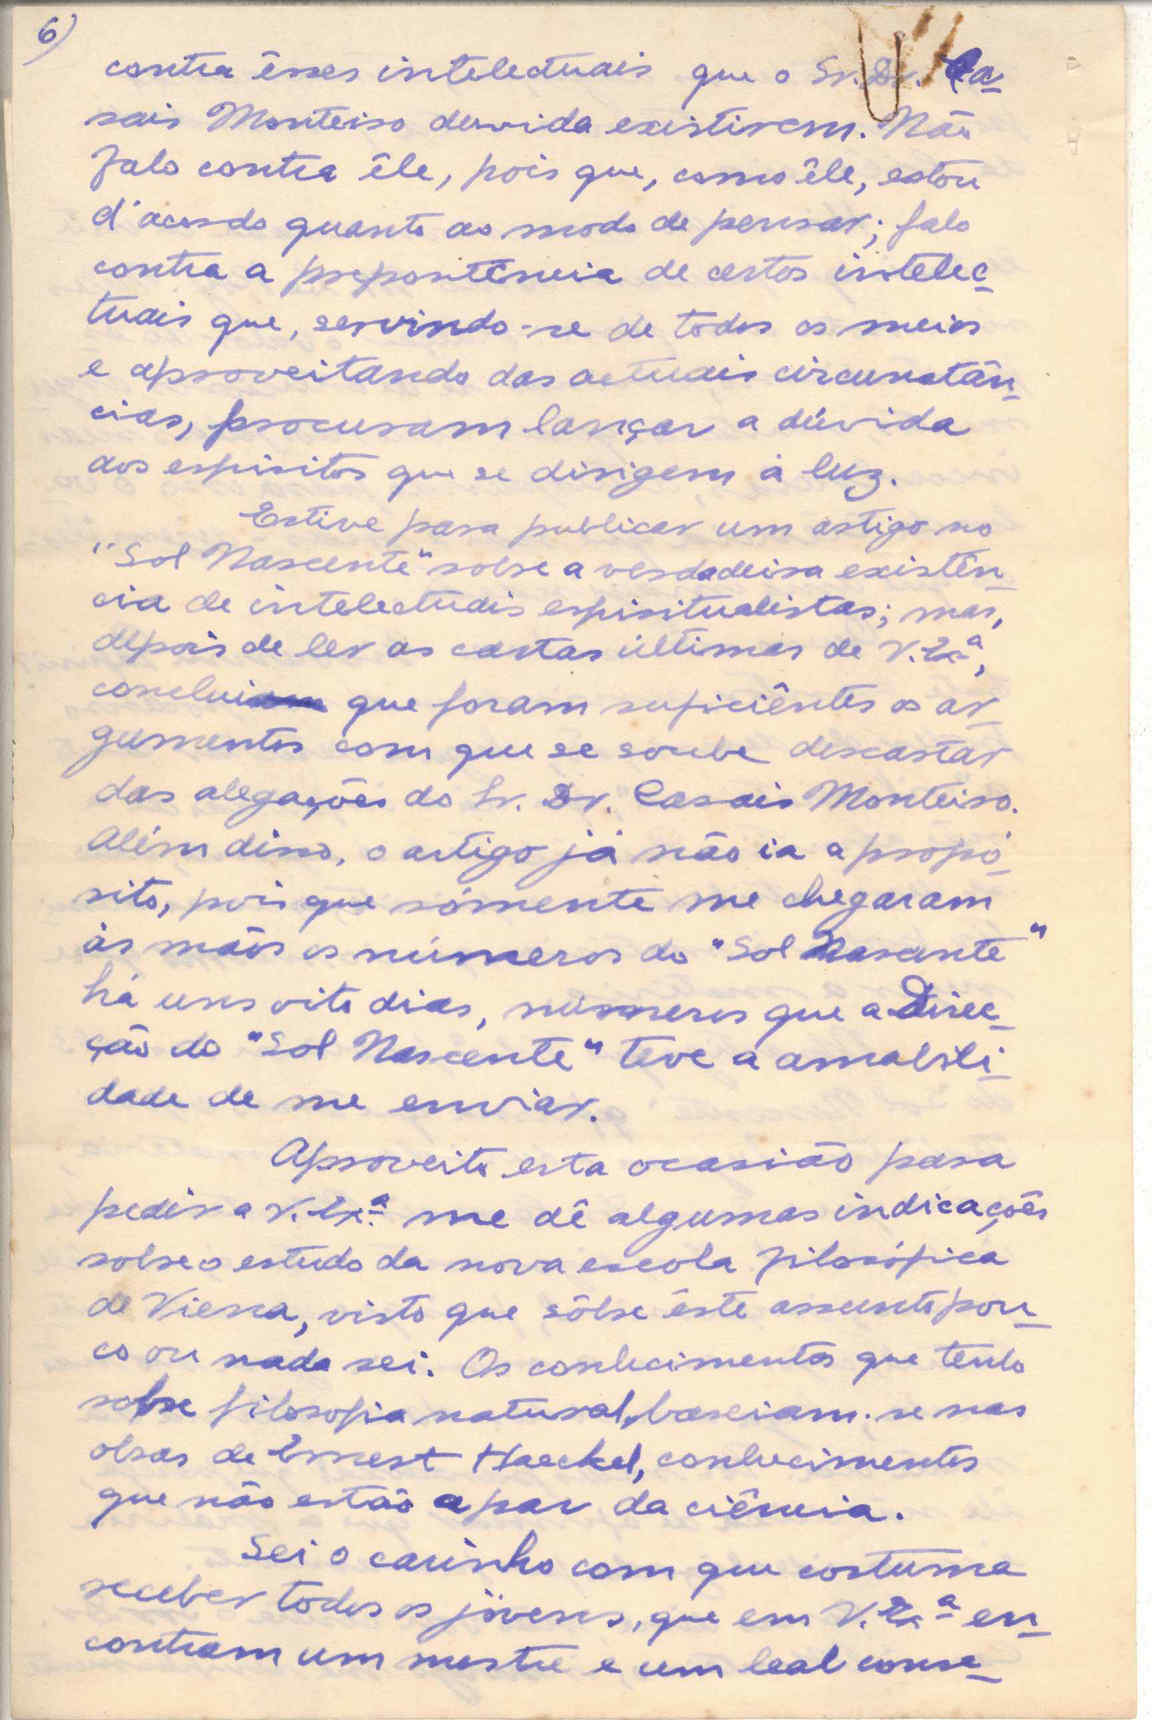 6)
contra êsses intelectuais que o Sr. Dr. Ca-
sais Monteiro duvida existirem. Não
falo contra êle, pois que, como êle, estou
d'acordo quanto ao modo de pensar; falo
contra a prepontência de certos intelec-
tuais que, servindo-se de todos os meios
e aproveitando das actuais circunstân-
cias, procuram lançar a dúvida
aos espíritos que se dirigem à luz.
Estive para publicar um artigo no
"Sol Nascente" sobre a verdadeira existên-
cia de intelectuais espiritualistas; mas,
depois de ler as cartas últimas de V. Ex.ª,
conclui que foram suficiêntes os ar-
gumentos com que se soube descartar
das alegações do Sr. Dr. Casais Monteiro.
Além disso, o artigo já não ia a propó-
sito, pois que sómente me chegaram
às mãos os números do "Sol Nascente"
há uns oito dias, números que a Direc-
ção do "Sol Nascente" teve a amabili-
dade de me enviar.
Aproveito esta ocasião para
pedir a V. Ex.ª me dê algumas indicações
sobre o estudo da nova escola filosófica
de Viena, visto que sôbre êste assunto pou-
co ou nada sei. Os conhecimentos que tenho
sobre filosofia natural, baseiam-se nas
obras de Ernest Haeckel, conhecimentos
que não estão a par da ciência.
Sei o carinho com que costuma
receber todos os jóvens, que em V. Ex.ª en-
contram um mestre e um leal conse-